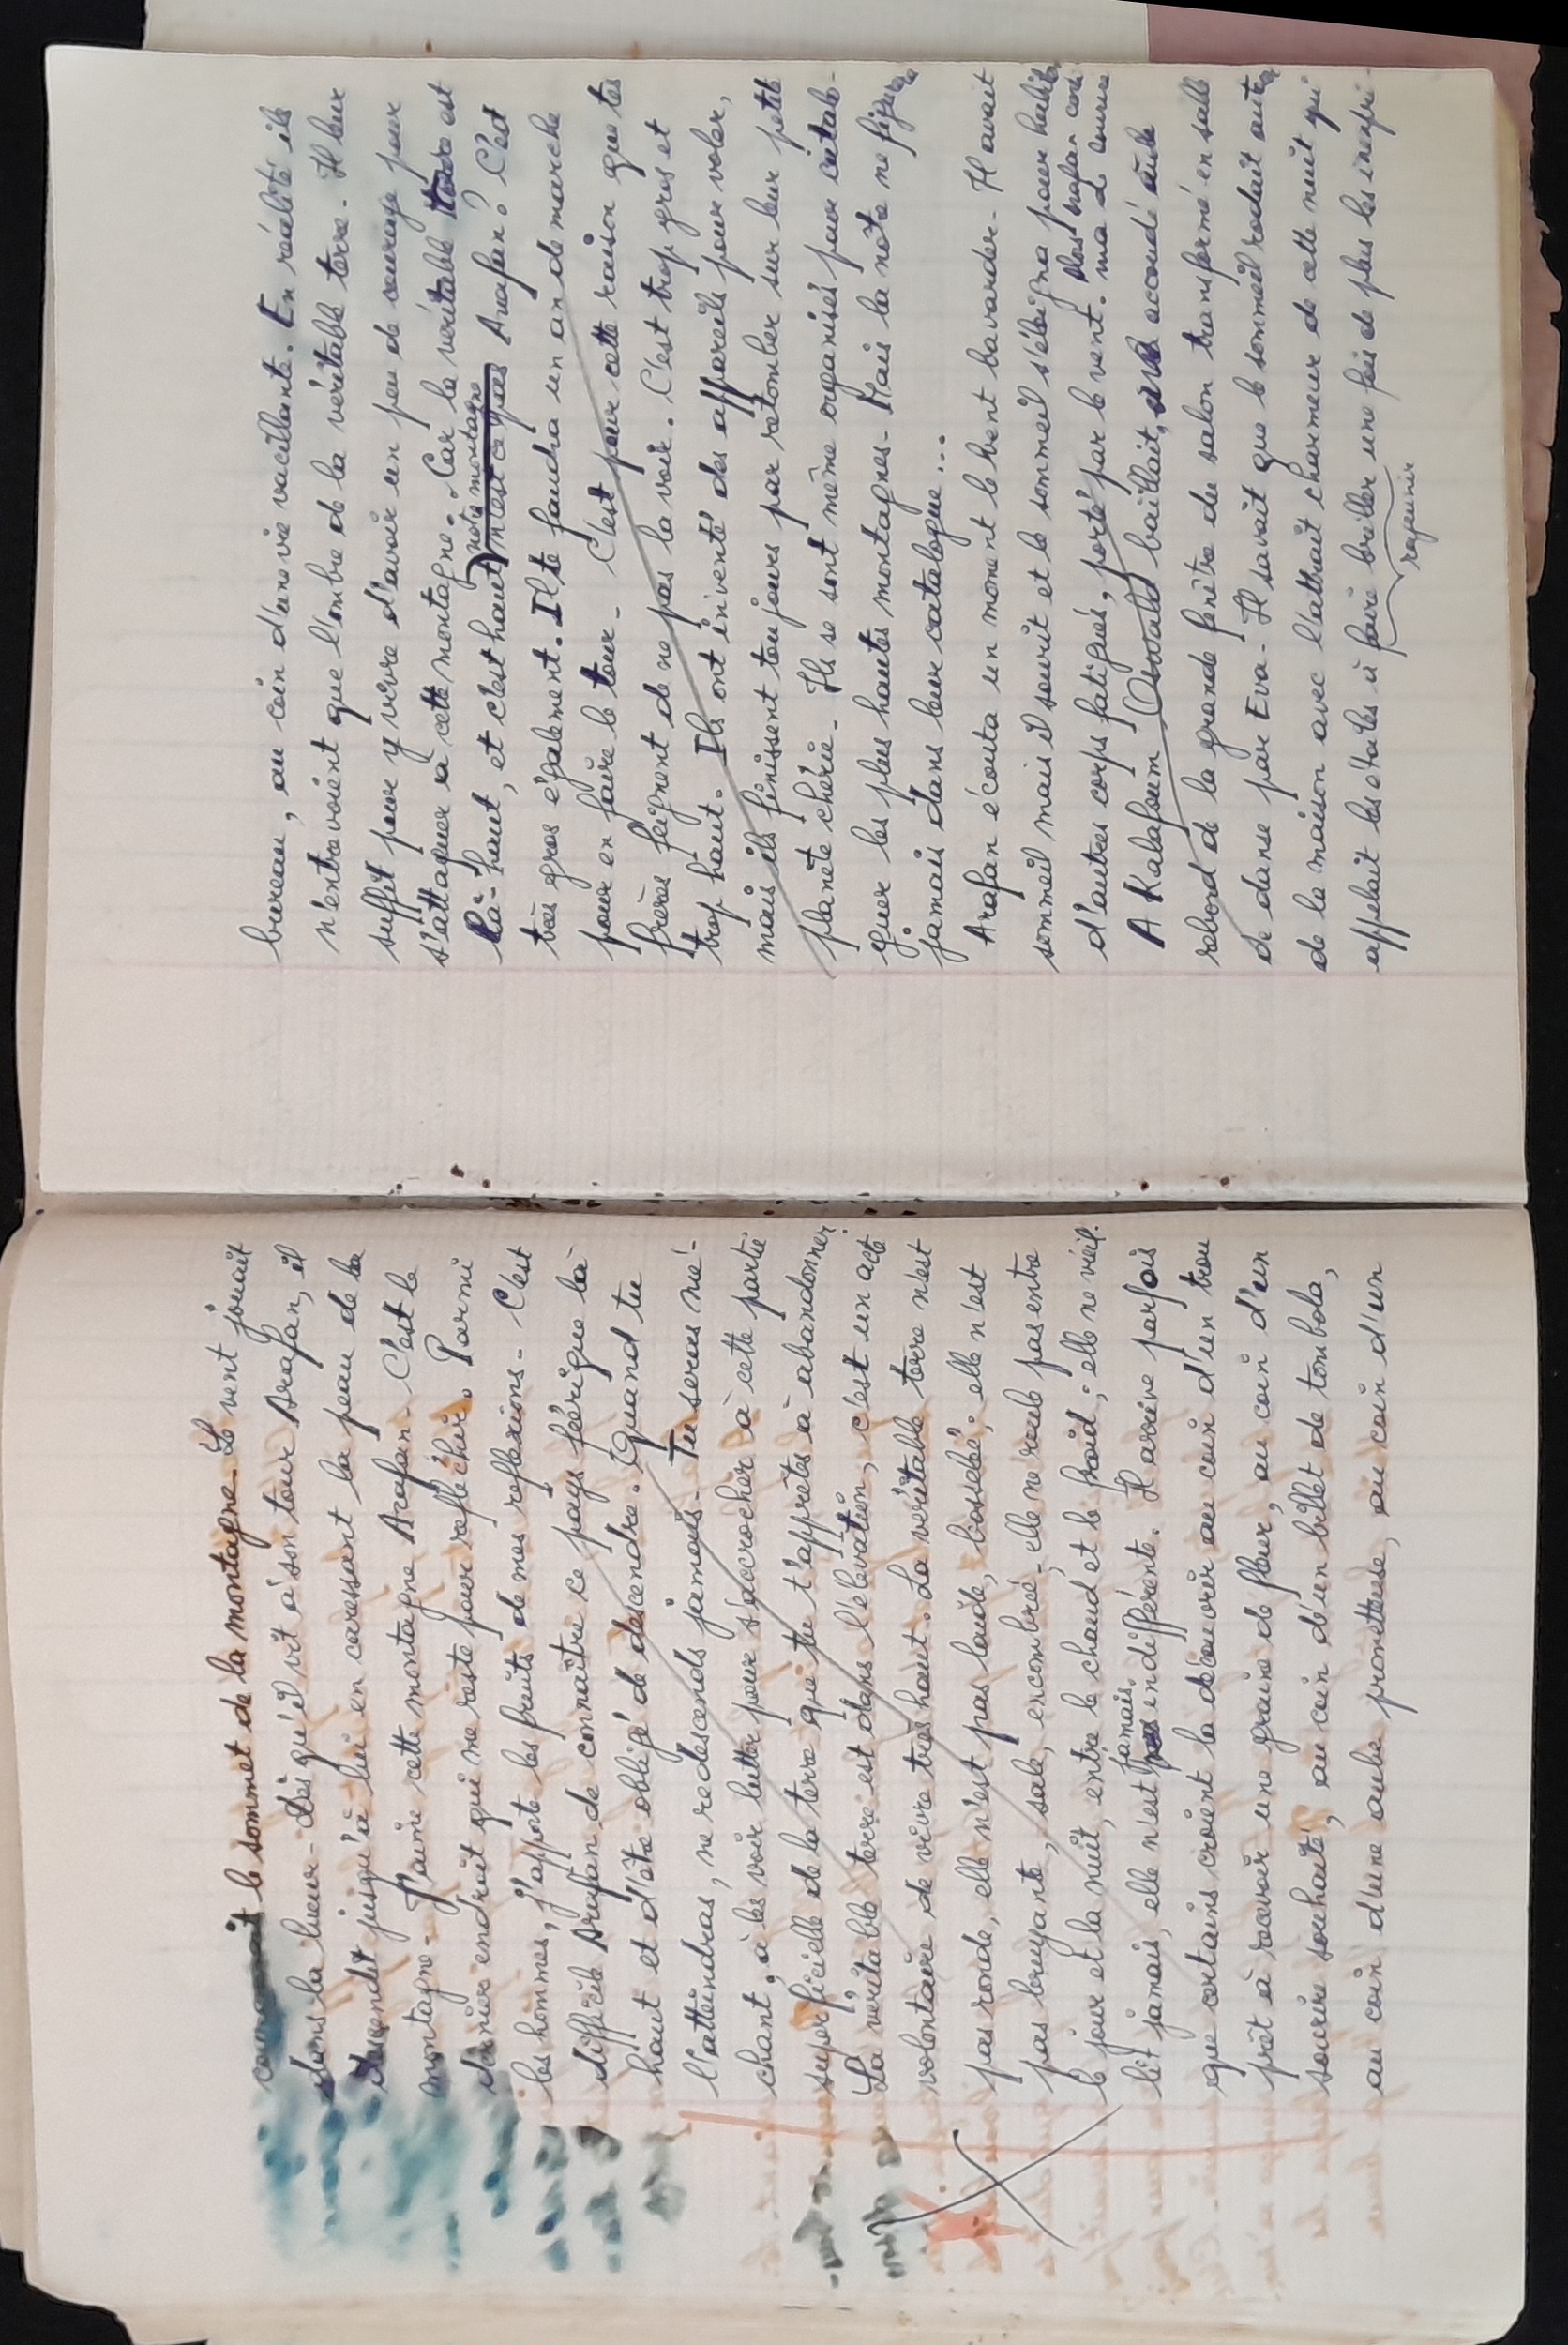 couronnait le sommet de la montagne - Le vent jouait
dans la lueur - Dès qu'il vit à son tour Arafan, il
descendit jusqu'à lui en caressant la peau de la
montagne - J'aime cette montagne Arafan - C'est le
dernier endroit qui me reste pour réfléchir. Parmi
les hommes, j'apporte les fruits de mes réflexions - C'est
difficile Arafan de connaître ce pays féérique là
haut et d'être obligé de descendre. Quand tu
l'atteindras, ne redescends jamais - Tu seras mé-
chant, à les voir lutter pour s'accrocher à cette partie
superficielle de la terre que tu t'apprêtes à abandonner.
La véritable terre est dans l'élévation, c'est un acte
volontaire de vivre très haut. La véritable terre n'est
pas ronde, elle n'est pas laide, bosselée ; elle n'est
pas bruyante, sale, encombrée - elle ne roule pas entre
le jour et la nuit, entre le chaud et le froid ; elle ne vieil-
lit jamais, elle n'est jamais indifférente. Il arrive parfois
que certains croient la découvrir au coin d'un trou
prêt à recevoir une graine de fleur, au coin d'un
sourire souhaité, au coin d'un billet de tombola,
au coin d'une aube prometteuse, au coin d'un
bureau, au coin d'une vie vacillante. En réalité ils
n'entrevoient que l'ombre de la véritable terre - Il leur
suffit pour y vivre d'avoir un peu de courage pour
s'attaquer à cette montagne. Car la véritable terre est
là-haut, et c'est haut notre montagne n'est-ce pas Arafan ? C'est
très gros également. Il te faudra un an de marche
pour en faire le tour - C'est pour cette raison que tes
frères feignent de ne pas la voir. C'est trop gros et
trop haut. Ils ont inventé des appareils pour voler,
mais ils finissent toujours par retomber sur leur petite
planète chérie - Ils se sont même organisés pour catalo-
guer les plus hautes montagnes - Mais la nôtre ne figure
jamais dans leur catalogue...
Arafan écouta un moment le vent bavarder - Il avait
sommeil mais il sourit et le sommeil s'éloigna pour habiter
d'autres corps fatigués, porté par le vent.
A Kalafoum Oswald baillait, accoudé au
rebord de la grande fenêtre du salon transformé en salle
de danse par Eva - Il savait que le sommeil rodait autour
de la maison avec l'attrait charmeur de cette nuit qui
appelait les étoiles à faire briller une fois de plus les
rajeunir